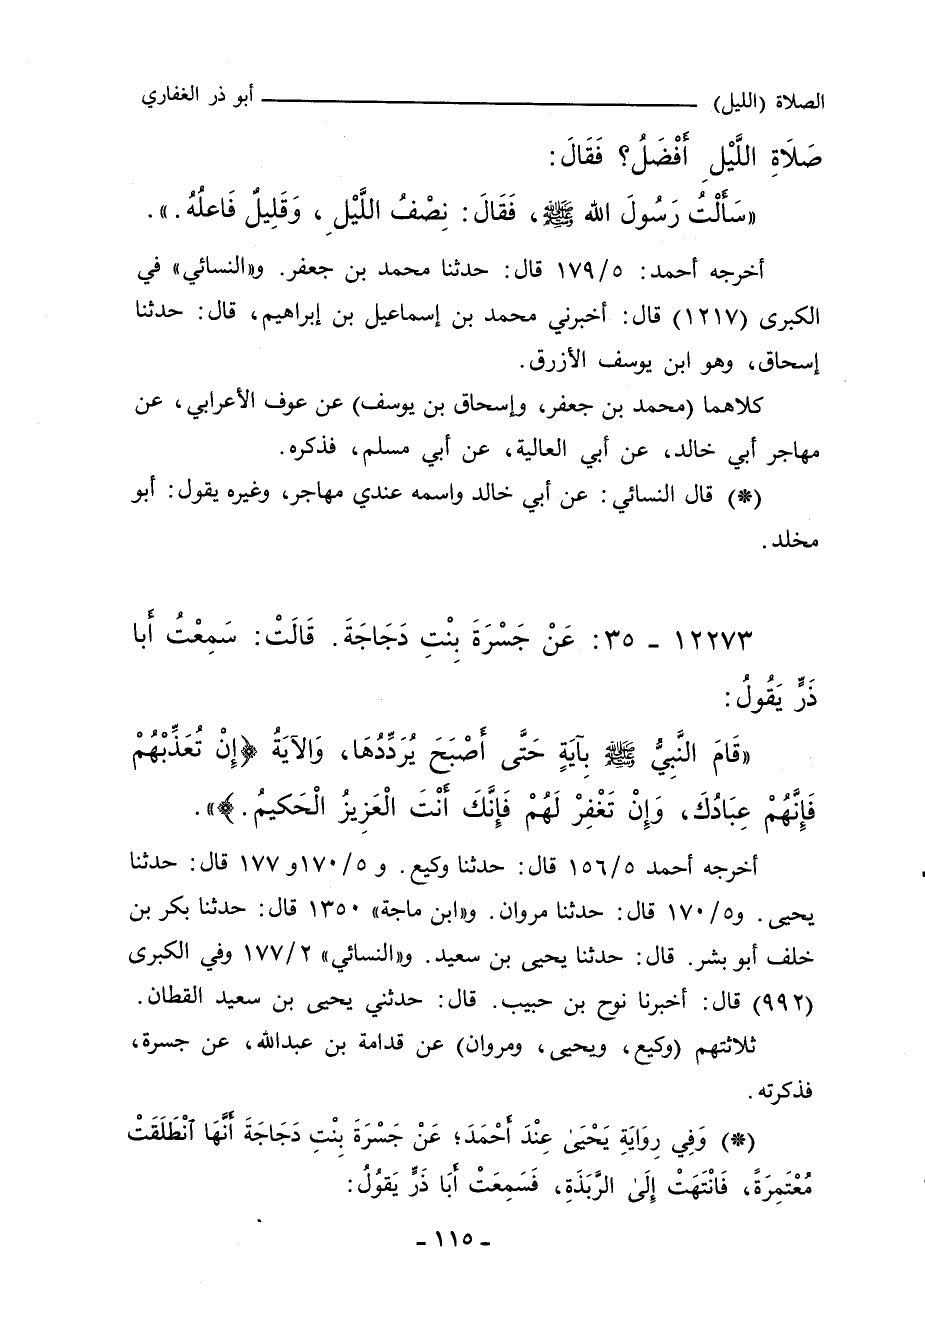 الصلاة (الليل) ــــــــــــــــــــــــــــــــ أبو ذر الغفاري
صَلَاةِ اللَّيْلِ أَفْضَلُ؟ فَقَالَ:
«سَأَلْتُ رَسُولَ اللهِ ﷺ، فَقَالَ: نِصْفُ اللَّيْلِ، وَقَلِيلٌ فَاعِلُهُ.».
أخرجه أحمد: ١٧٩/٥ قال: حدثنا محمد بن جعفر. و«النسائي» في
الكبرى (١٢١٧) قال: أخبرني محمد بن إسماعيل بن إبراهيم، قال: حدثنا
إسحاق، وهو ابن يوسف الأزرق.
كلاهما (محمد بن جعفر، وإسحاق بن يوسف) عن عوف الأعرابي، عن
مهاجر أبي خالد، عن أبي العالية، عن أبي مسلم، فذكره.
(*) قال النسائي: عن أبي خالد واسمه عندي مهاجر، وغيره يقول: أبو
مخلد.
١٢٢٧٣ ـ ٣٥: عَنْ جَسْرَةَ بِنْتِ دَجَاجَةَ. قَالَتْ: سَمِعْتُ أَبا
ذَرٍّ يَقُولُ:
«قَامَ النَّبِيُّ ﷺ بِآيَةٍ حَتَّى أَصْبَحَ يُرَدِّدُهَا، وَالآيَةُ ﴿إِنْ تُعَذِّبْهُمْ
فَإِنَّهُمْ عِبَادُكَ، وَإِنْ تَغْفِرْ لَهُمْ فَإِنَّكَ أَنْتَ الْعَزِيزُ الْحَكِيمُ.﴾».
أخرجه أحمد ١٥٦/٥ قال: حدثنا وكيع. و ١٧٠/٥ و ١٧٧ قال: حدثنا
يحيى. و١٧٠/٥ قال: حدثنا مروان. و«ابن ماجة» ١٣٥٠ قال: حدثنا بكر بن
خلف أبو بشر. قال: حدثنا يحيى بن سعيد. و«النسائي» ١٧٧/٢ وفي الكبرى
(٩٩٢) قال: أخبرنا نوح بن حبيب. قال: حدثني يحيى بن سعيد القطان.
ثلاثتهم (وكيع، ويحيى، ومروان) عن قدامة بن عبدالله، عن جسرة،
فذكرته.
(*) وَفِي رِوَايَةِ يَحْيَىٰ عِنْدَ أَحْمَدَ؛ عَنْ جَسْرَةَ بِنْتِ دَجَاجَةَ أَنَّهَا ٱنْطَلَقَتْ
مُعْتَمِرَةً، فَانْتَهَتْ إِلَىٰ الرَّبَذَةِ، فَسَمِعَتْ أَبَا ذَرٍّ يَقُولُ:
ـ ١١٥ ـ